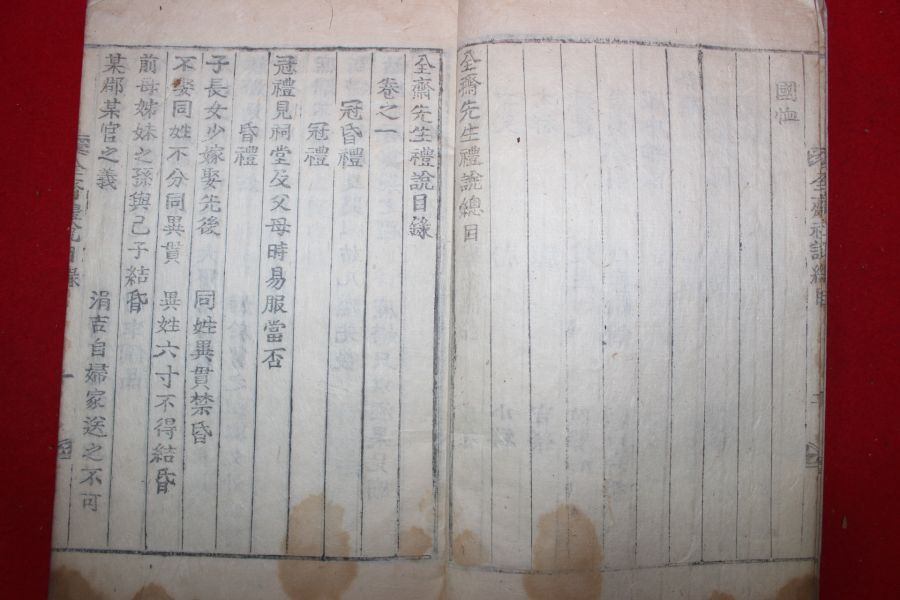 國恤
全齋先生禮說總目
全齋先生禮說目錄
卷之一
冠昏禮
冠禮
冠禮見祠堂及父母時易服當否
昏禮
子長女少嫁娶先後 同姓異貫禁昏
不娶同姓不分同異貫 異姓六寸不得結昏
前母姊妹之孫與己子結昏
某郡某官之義 涓吉自婦家送之不可
全齋禮說總目
全齋禮說目錄 一